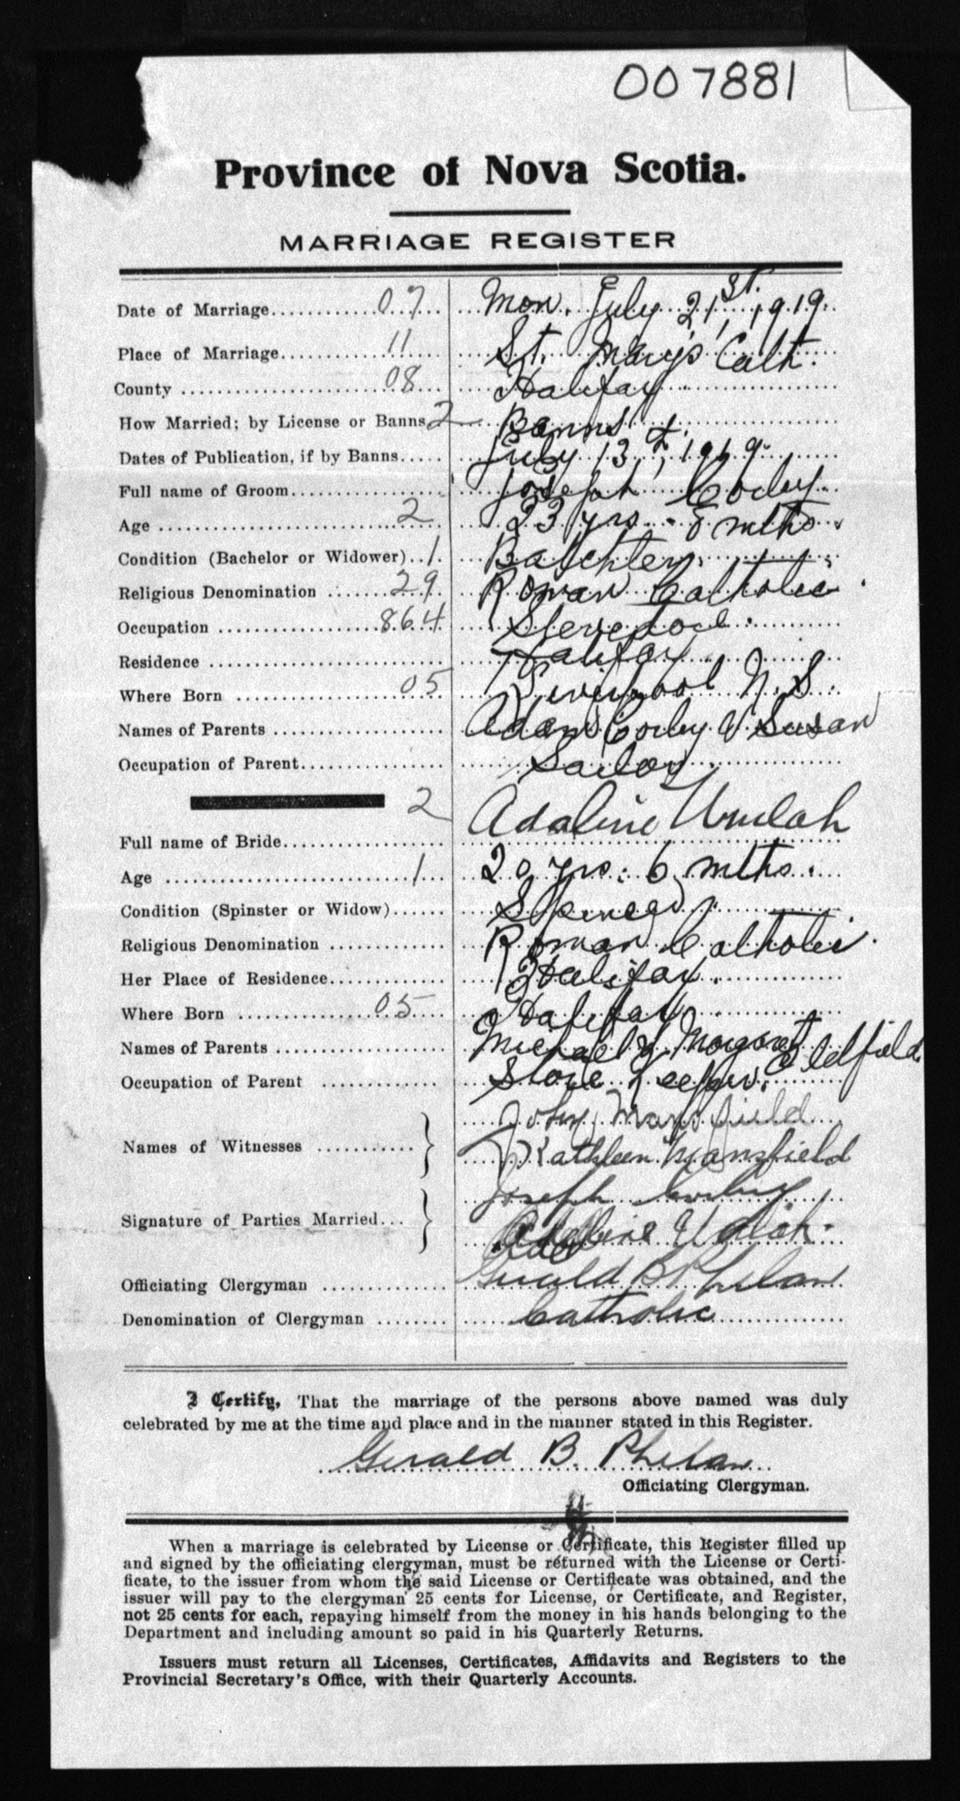 007881
Province of Nova Scotia.
MARRIAGE REGISTER
Date of Marriage 07 Mon. July 21st. 1919.
Place of Marriage 11 St. Mary's Cath.
County 08 Halifax
How Married; by License or Banns 2 Banns
Dates of Publication, if by Banns July 13th, 1919.
Full name of Groom Joseph
Age 2 23 yrs. 8 mths.
Condition (Bachelor or Widower) 1. Batchler.
Religious Denomination 29 Roman Catholic.
Occupation 864
Residence Halifax
Where Born 05 Liverpool N.S.
Names of Parents Adam & Susan
Occupation of Parent Sailor.
2
Full name of Bride Adaline
Age 1 20 yrs. 6 mths.
Condition (Spinster or Widow)
Religious Denomination Roman Catholic.
Her Place of Residence Halifax.
Where Born 05 Halifax
Names of Parents Michael & Margaret
Occupation of Parent Store Keeper.
Names of Witnesses John Mansfield
Kathleen Mansfield
Signature of Parties Married Joseph
Adaline
Officiating Clergyman Gerald B. Phelan
Denomination of Clergyman Catholic
I Certify, That the marriage of the persons above named was duly
celebrated by me at the time and place and in the manner stated in this Register.
Gerald B. Phelan
Officiating Clergyman.
When a marriage is celebrated by License or Certificate, this Register filled up
and signed by the officiating clergyman, must be returned with the License or Certi-
ficate, to the issuer from whom the said License or Certificate was obtained, and the
issuer will pay to the clergyman 25 cents for License, or Certificate, and Register,
not 25 cents for each, repaying himself from the money in his hands belonging to the
Department and including amount so paid in his Quarterly Returns.
Issuers must return all Licenses, Certificates, Affidavits and Registers to the
Provincial Secretary's Office, with their Quarterly Accounts.